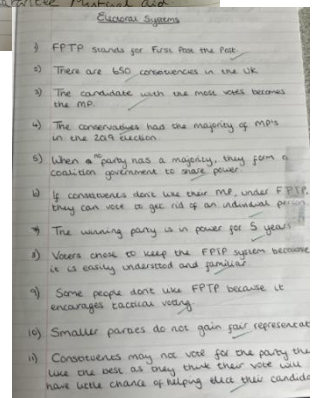 Mutual aid
Electoral Systems
1) FPTP stands for First Past the Post.
2) There are 650 constituencies in the UK
3) The candidate with the most votes becomes
the MP.
4) The conservatives had the majority of MP's
in the 2019 election.
5) When no party has a majority, they form a
coalition government to share power.
6) If constituents don't like their MP, under FPTP,
they can vote to get rid of an individual person
7) The winning party is in power for 5 years
8) Voters chose to keep the FPTP system because
it is easily understood and familiar.
9) Some people don't like FPTP because it
encourages tactical voting.
10) Smaller parties do not gain fair representat
11) Constituents may not vote for the party they
like the best as they think their vote will
have little chance of helping elect their candida